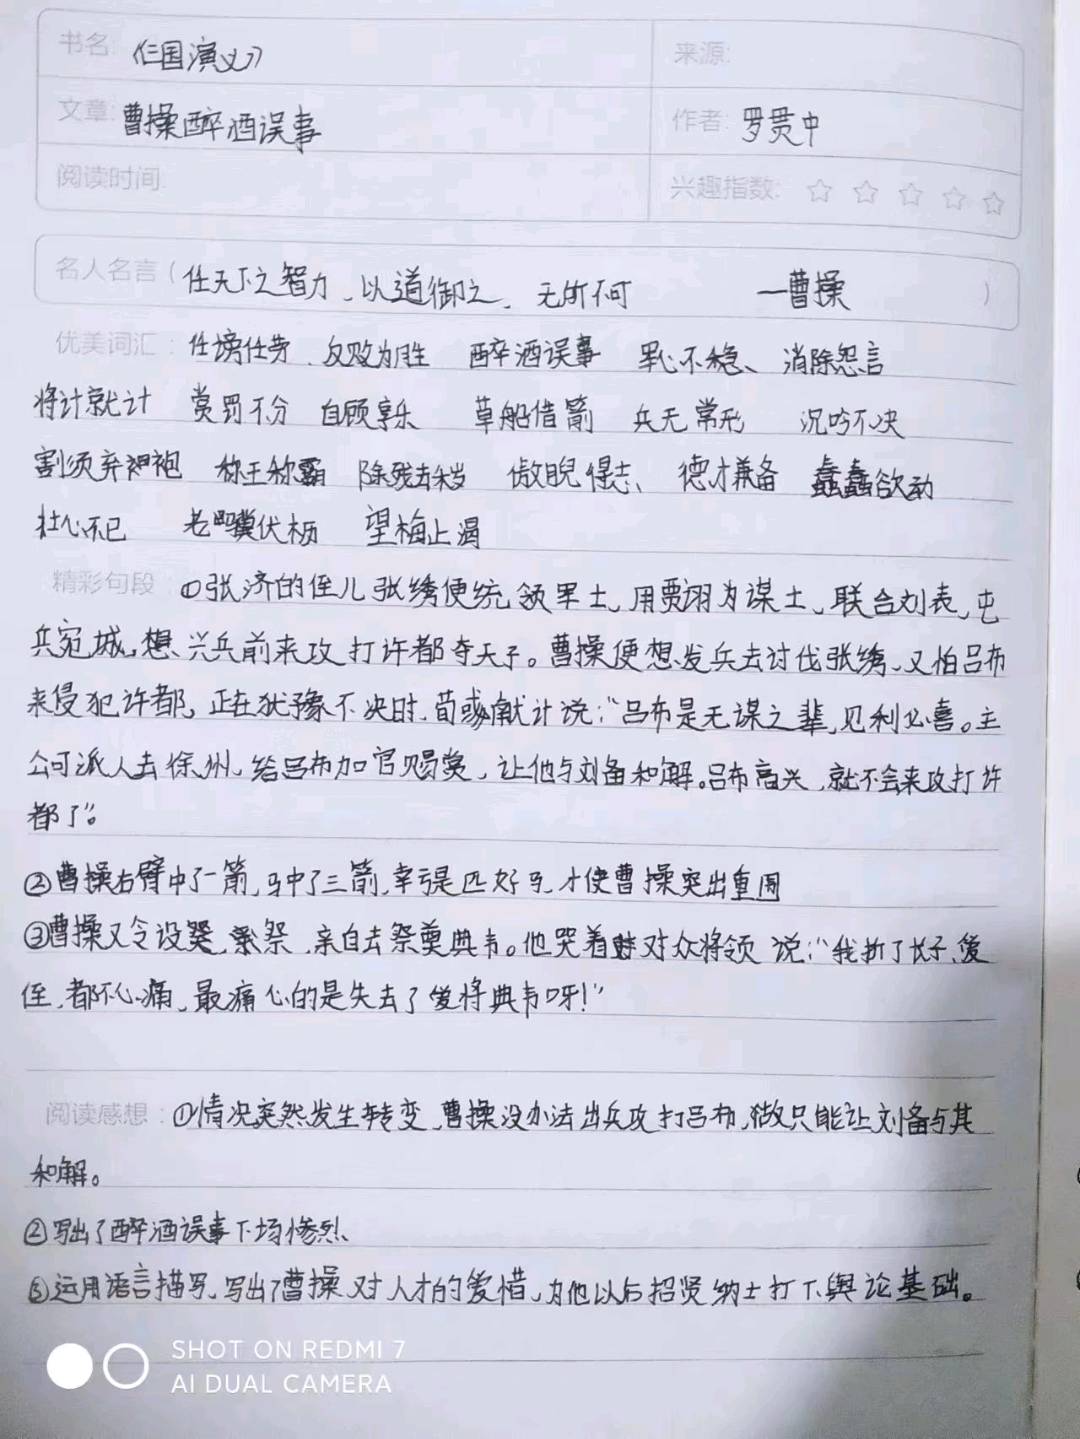 书名: 《三国演义》 来源:
文章: 曹操醉酒误事 作者: 罗贯中
阅读时间: 兴趣指数: ☆ ☆ ☆ ☆ ☆
名人名言( 任天下之智力、以道御之、无所不可 —曹操 )
优美词汇: 任谤任劳、反败为胜 醉酒误事 军心不稳、消除怨言
将计就计 赏罚不分 自顾享乐 草船借箭 兵无常形 沉吟不决
割须弃袍 称王称霸 除残去秽 傲睨得志、德才兼备 蠢蠢欲动
壮心不已 老骥伏枥 望梅止渴
精彩句段 ①张济的侄儿张绣便统领军士,用贾诩为谋士、联合刘表,屯
兵宛城,想兴兵前来攻打许都夺天子。曹操便想发兵去讨伐张绣、又怕吕布
来侵犯许都,正在犹豫不决时,荀彧献计说:“吕布是无谋之辈,见利必喜。主
公可派人去徐州,给吕布加官赐赏,让他与刘备和解。吕布高兴,就不会来攻打许
都了”。
②曹操右臂中了一箭,马中了三箭,幸亏是匹好马,才使曹操突出重围
③曹操又令设祭,亲自去祭奠典韦。他哭着对众将领说:“我折了长子、爱
侄,都不心痛,最痛心的是失去了爱将典韦呀!”
阅读感想: ①情况突然发生转变,曹操没办法出兵攻打吕布,做只能让刘备与其
和解。
②写出了醉酒误事下场惨烈
③运用语言描写,写出了曹操对人才的爱惜,为他以后招贤纳士打下舆论基础。
SHOT ON REDMI 7
AI DUAL CAMERA